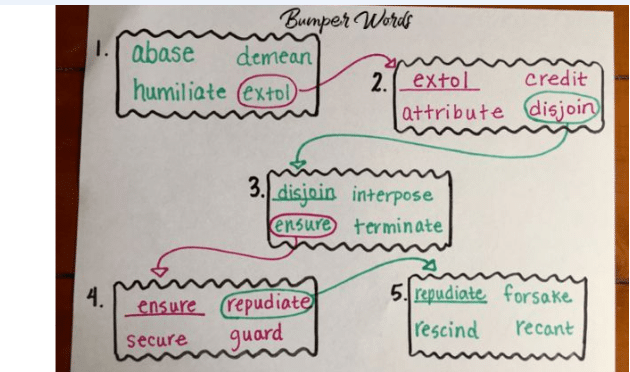 Bumper Words
1.
abase demean
humiliate extol
2.
extol credit
attribute disjoin
3.
disjoin interpose
ensure terminate
4.
ensure repudiate
secure guard
5.
repudiate forsake
rescind recant